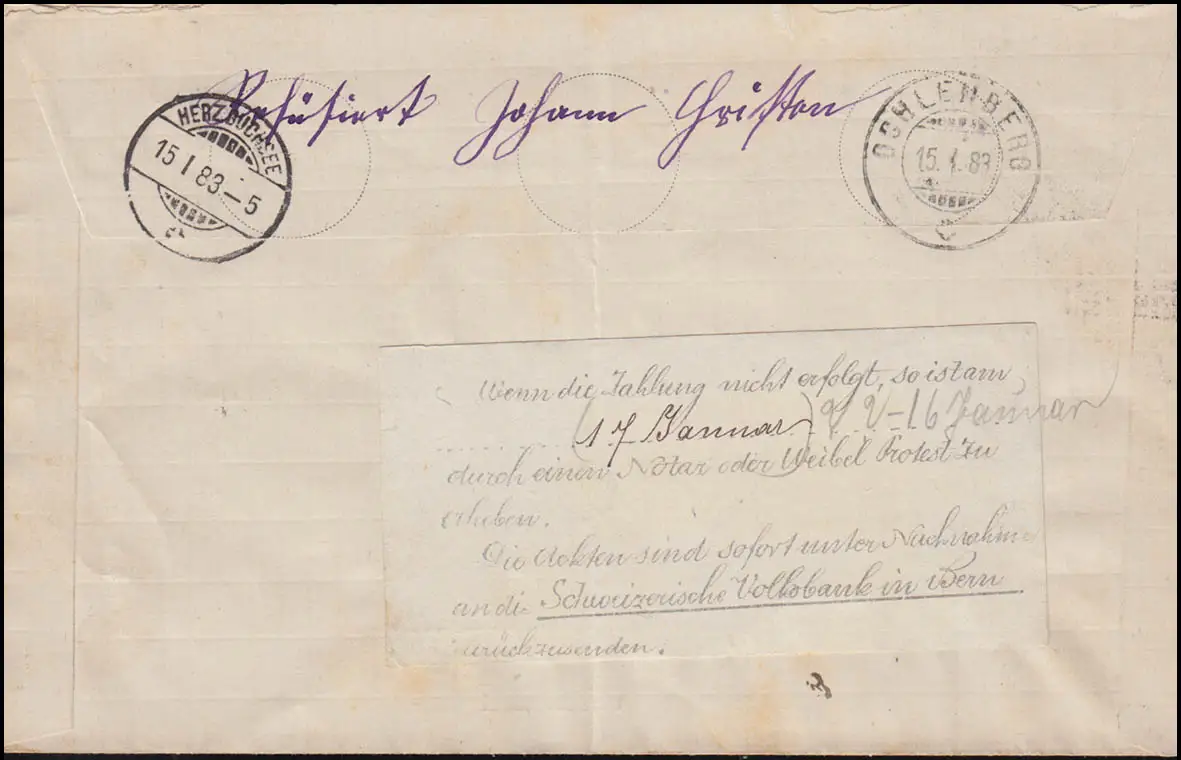 Refüsiert Johann Christen
HERZOGENBUCHSEE
15 I 83—5
OCHLENBERG
15. 1. 83
Wenn die Zahlung nicht erfolgt, so ist am
(17 Januar) 16 Januar
durch einen Notar oder Weibel Protest zu
erheben.
Die Aekten sind sofort unter Nachnahme
an die Schweizerische Volksbank in Bern
zurückzusenden.